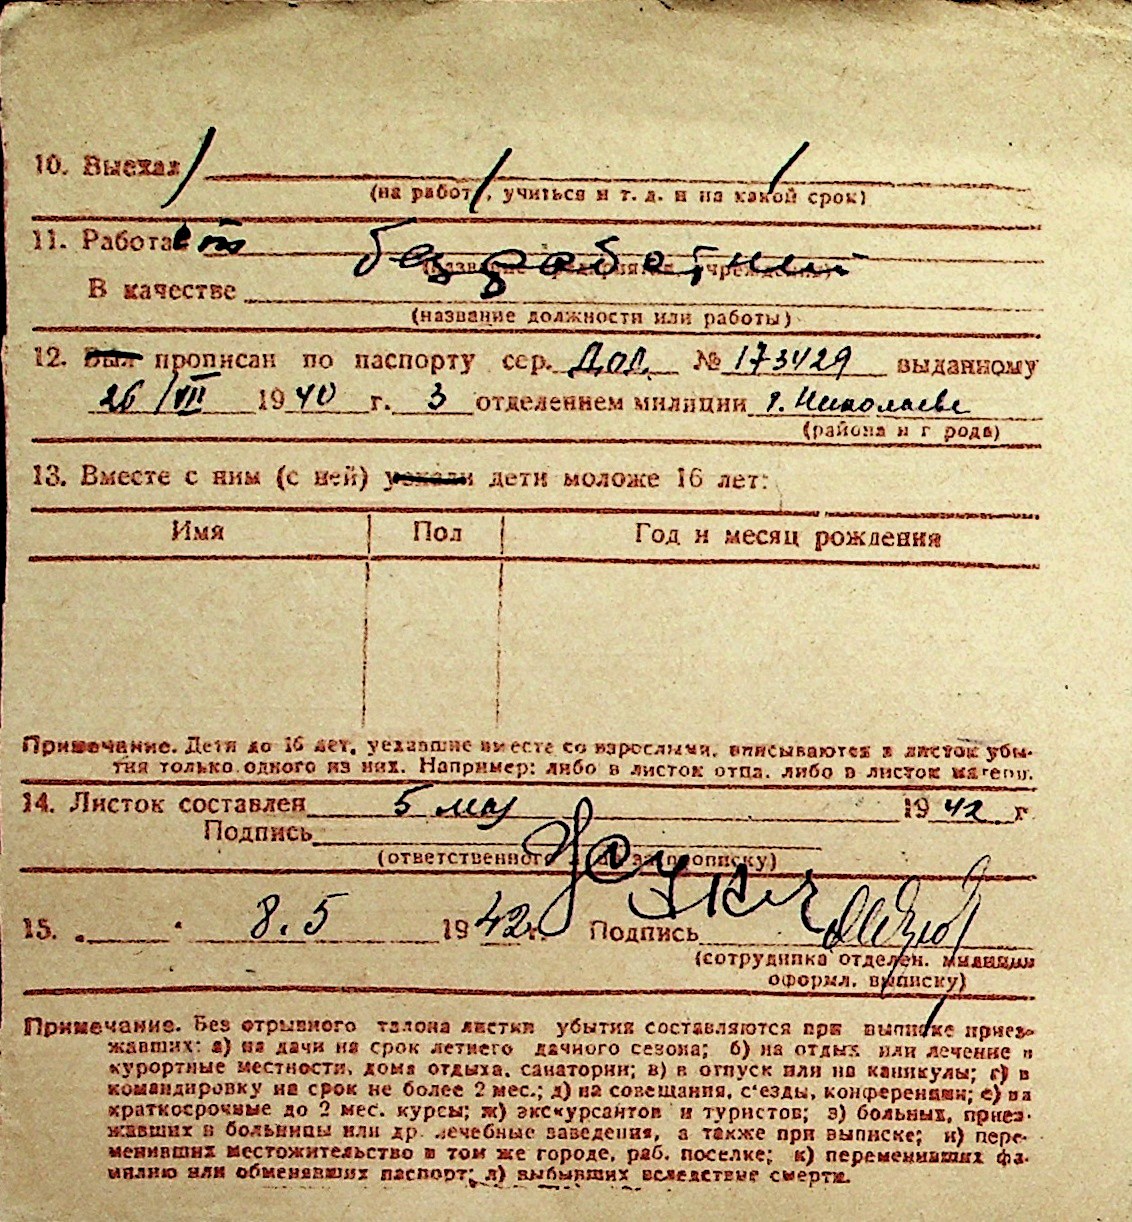 10. Выехал
(на работу, учиться и т. д. и на какой срок)
11. Работает безработный
(название предприятия, учреждения)
В качестве
(название должности или работы)
12. Был прописан по паспорту сер. ДОЛ № 173429 выданному
26/VII 1940 г. 3 отделением милиции г. Николаеве
(района и города)
13. Вместе с ним (с ней) уехали дети моложе 16 лет:
Имя Пол Год и месяц рождения
Примечание. Дети до 16 лет, уехавшие вместе со взрослыми, вписываются в листок убы-
тия только одного из них. Например: либо в листок отца, либо в листок матери.
14. Листок составлен 5 мая 1942 г
Подпись
(ответственного за прописку)
15. 8.5 1942 г. Подпись
(сотрудника отделен. милиции
оформл. выписку)
Примечание. Без отрывного талона листки убытия составляются при выписке приез-
жавших: а) на дачи на срок летнего дачного сезона; б) на отдых или лечение в
курортные местности, дома отдыха, санатории; в) в отпуск или на каникулы; г) в
командировку на срок не более 2 мес.; д) на совещания, с'езды, конференции; е) на
краткосрочные до 2 мес. курсы; ж) экскурсантов и туристов; з) больных, приез-
жавших в больницы или др. лечебные заведения, а также при выписке; и) пере-
менивших местожительство в том же городе, раб. поселке; к) переменивших фа-
милию или обменявших паспорт; л) выбывших вследствие смерти.